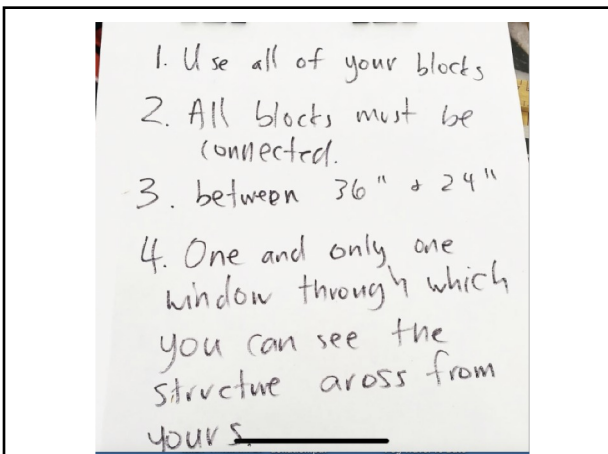 1. Use all of your blocks
2. All blocks must be
connected.
3. between 36" & 24"
4. One and only one
window through which
you can see the
structure aross from
yours.